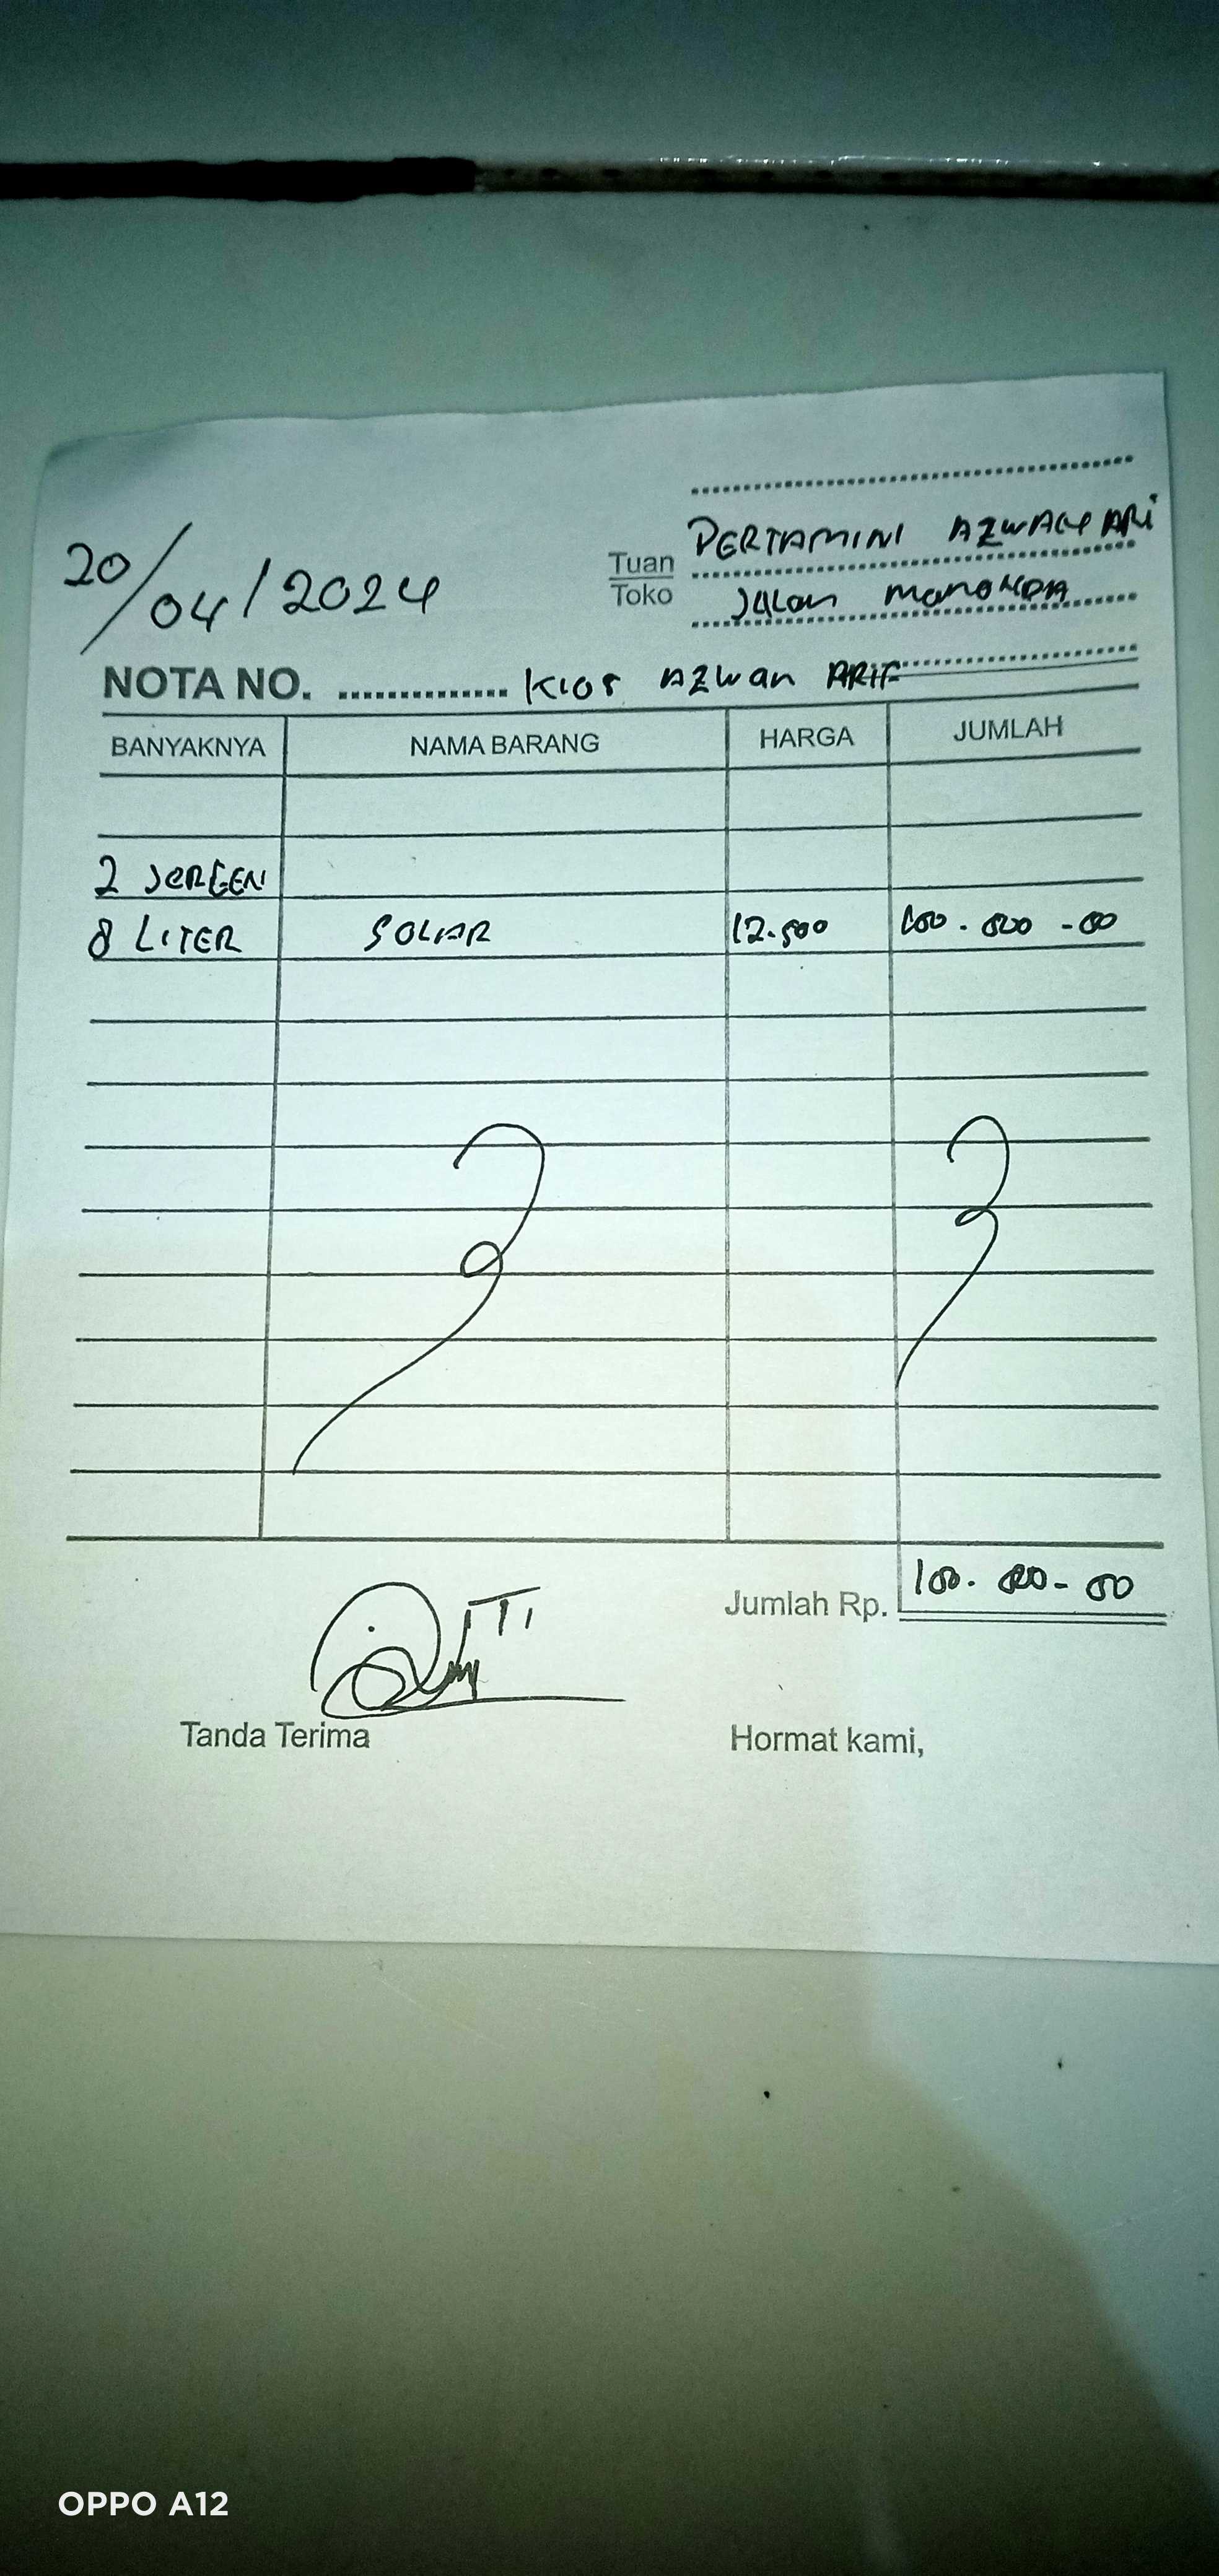 20/04/2024
Tuan
Toko
PERTAMINI
Jalan
NOTA NO. ............... KIOS AZWAN ARIF
BANYAKNYA NAMA BARANG HARGA JUMLAH
2 JERGEN
8 LITER SOLAR 12.500 100.000-00
Jumlah Rp. 100.000-00
Tanda Terima Hormat kami,
OPPO A12